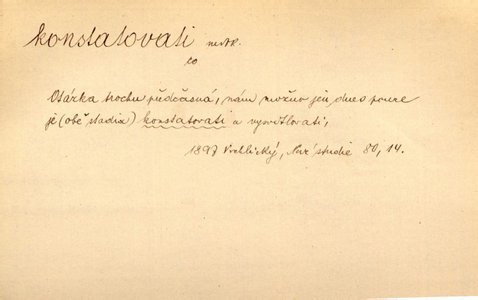 konstatovati nedok.
co
Otázka trochu předčasná, nám možno jen dnes pouze
je (obě stadia) konstatovati a vysvětlovati,
1897 Vrchlický, Nové studie 80, 14.